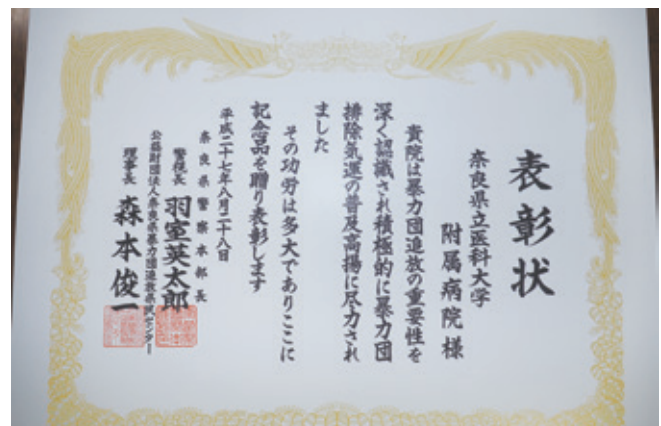 表彰状
奈良県立医科大学
附属病院様
貴院は暴力団追放の重要性を
深く認識され積極的に暴力団
排除気運の普及高揚に尽力され
ました
その功労は多大でありここに
記念品を贈り表彰します
平成二十七年八月二十八日
奈良県警察本部長
警視長 羽室英太郎
公益財団法人奈良県暴力団追放県民センター
理事長 森本俊一